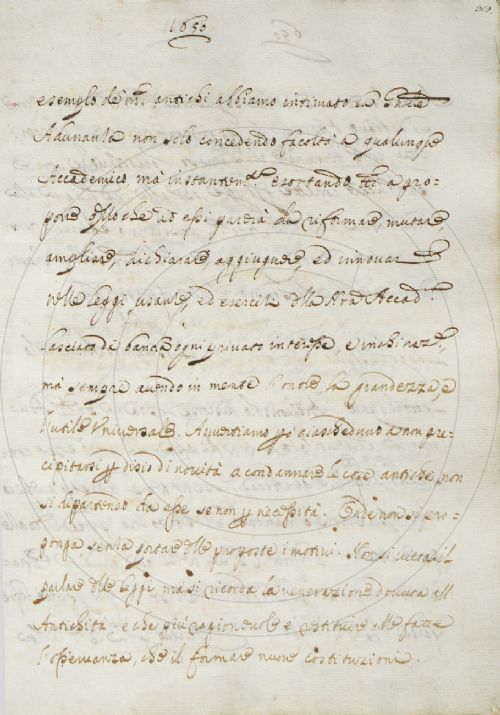 1650
esemplo de' nri antichi abbiamo intimato la
Adunanza non solo concedendo facoltà a qualunque
Accademico, mà instantem.te esortando tti a pro-
porre qllo che ad essi parerà da riformare, mutare,
ampliare, dichiarare, aggiugnere, ed innovare
nelle leggi, usanze, ed esercizi della nra Accad.a
lasciato da banda ogni privato interesse, e inchinaz.e
mà sempre avendo in mente l'onore la grandezza, e
l'utile Universale. Avvertiamo però ciascheduno a non pre-
cipitarsi p disio di novità a condannare le cose antiche, non
si dipartendo da esse se non p necessità. Onde non si pro-
ponga senza portare delle proposte i motivi. Non si vieta il
parlare delle leggi, mà si ricorda la venerazione dovuta all'
Antichità: e che più ragionevole è restituire alle fatte
l'osservanza, che il formare nuove costituzioni.